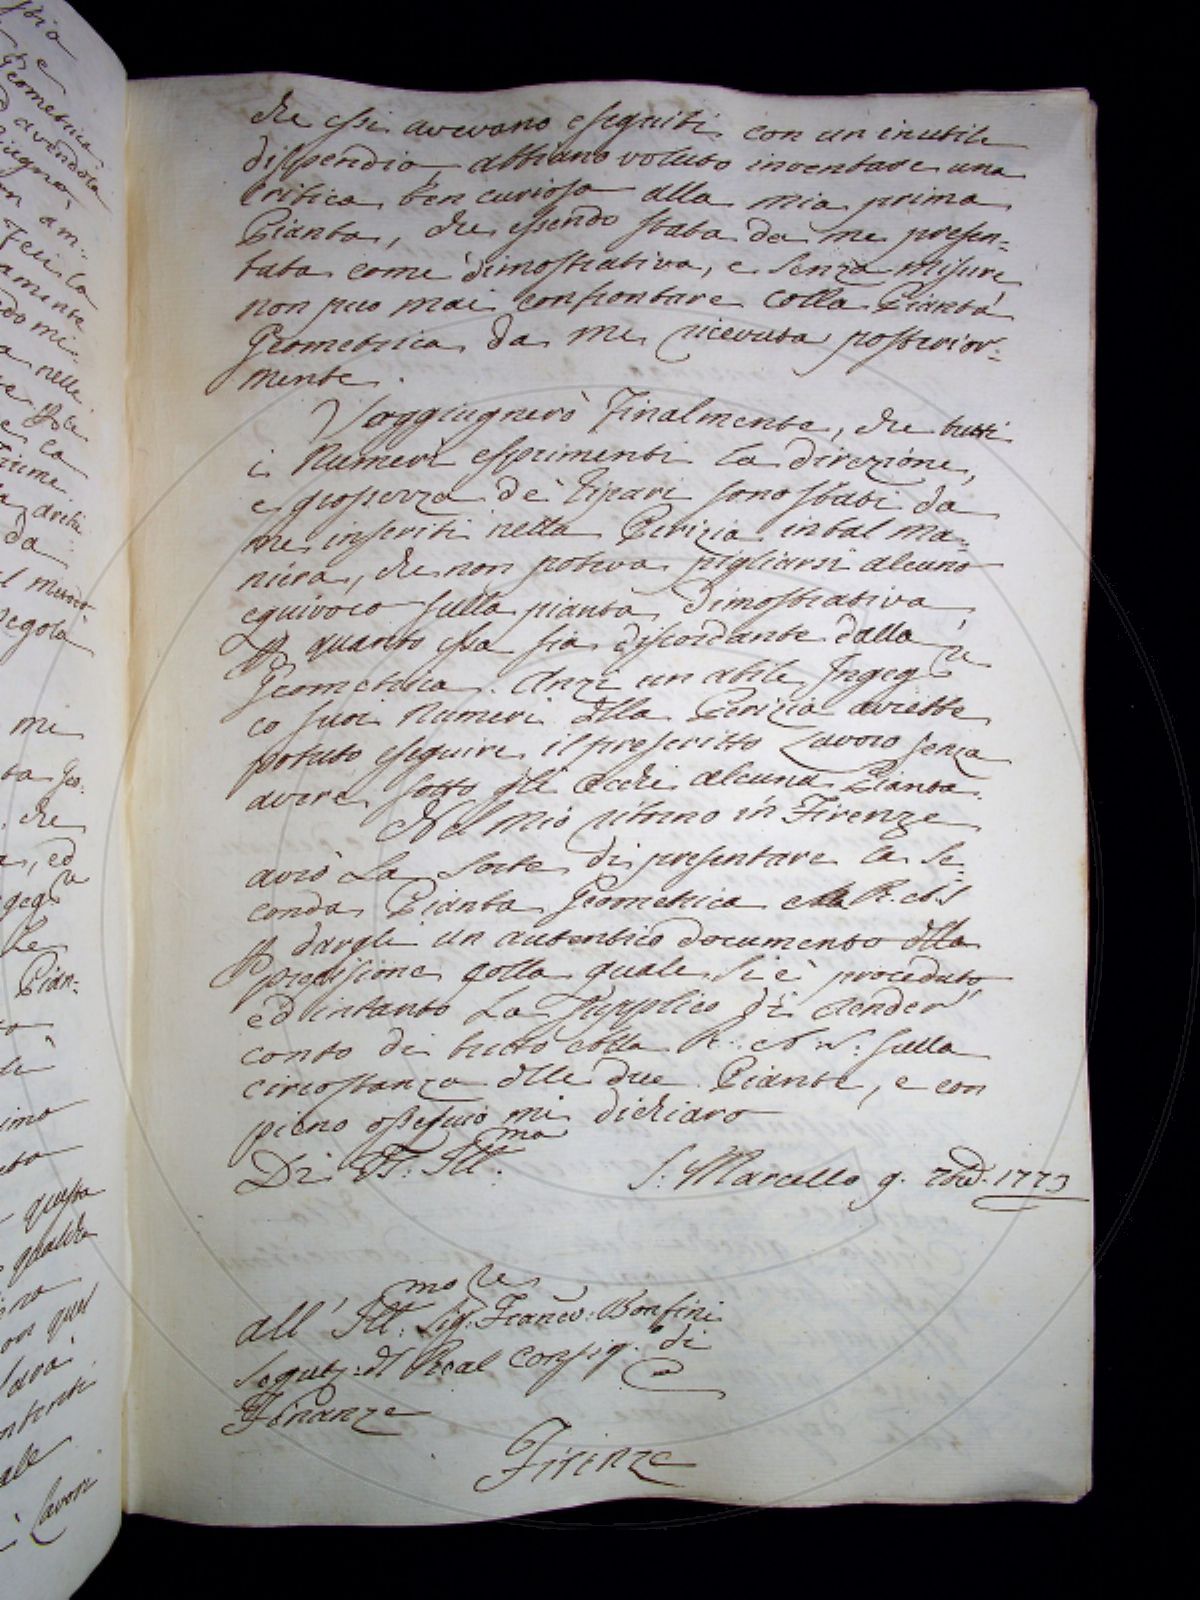 che essi avevano eseguiti con un inutile
dispendio, abbiano voluto inventare una
Critica ben curiosa alla mia prima
Pianta, che essendo stata da me presen=
tata come dimostrativa, e senza misure
non puo mai confrontare colla Pianta
Geometrica da me ricevuta posterior=
mente.
Soggiugnerò Finalmente, che tutti
i Numeri esprimenti la direzione,
e grossezza de' Ripari sono stati da
me inseriti nella Perizia in tal ma=
niera, che non poteva pigliarsi alcuno
equivoco sulla pianta dimostrativa
p quanto essa sia discordante dalla
Geometrica. Anzi un abile Ingeg.re
co suoi Numeri dlla Perizia avrebbe
potuto eseguire il prescritto Lavoro senza
avere sotto gli occhi alcuna Pianta.
Nel mio ritorno in Firenze
avrò La Sorte di presentare la Se=
conda Pianta Geometrica alla R. A. S
p dargli un autentico documento dlla
precisione colla quale si è proceduto
ed intanto La supplico di render
conto di tutto alla R: A: S: sulla
circostanza dlle due Piante, e con
pieno ossequio mi dichiaro
Di VS. Ill:ma
S: Marcello 9. 1773
all' Ill:mo Sig:re Franco: Bonfini
Segret: dl Real Consig. di
Finanze
Firenze